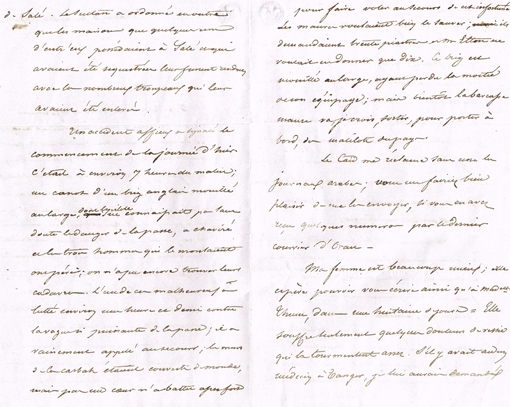 de Salé. Le Sultan a ordonné en outre
que les maisons que quelques uns
d'entr'eux possédaient à Salé et qui
avaient été séquestrées leur fussent rendues
avec les nombreux troupeaux qui leur
avaient été enlevés.
Un accident affreux a signalé le
commencement de la journée d'hier.
C'était à environ 7 heures du matin;
un canot d'un brig anglais mouillé
au large, dont l'équipage ne connaissait pas sans
doute le danger de la passe, a chaviré
et les trois hommes qui le montaient
ont péri; on n'a pu encore trouver leurs
cadavres. L'un de ces malheureux a
lutté environ une heure et demie contre
la vague si puissante de la passe; il a
vainement appelé au secours; les murs
de la casbah étaient couverts de monde,
mais pas un cœur n'a battu assez fort
pour faire voler au secours de cet infortuné
Les maures voulaient bien le sauver; mais ils
demandaient trente piastres et Mr Elton ne
voulait en donner que dix. Le brig est
mouillé au large, ayant perdu la moitié
de son équipage; mais bientôt la barcasse
maure va, je crois, sortir, pour porter à
bord, des matelots du pays.
Le Caïd me réclame sans cesse les
journaux arabes; vous me feriez bien
plaisir de me les envoyer, si vous en avez
reçu quelques numéros par le dernier
courrier d'Oran.
Ma femme est beaucoup mieux; elle
espère pouvoir vous écrire ainsi qu'à madame
dans une huitaine de jours. Elle
souffre seulement quelques douleurs
qui la tourmentent assez. S'il y avait un
médecin à Tanger, je lui aurais demandé